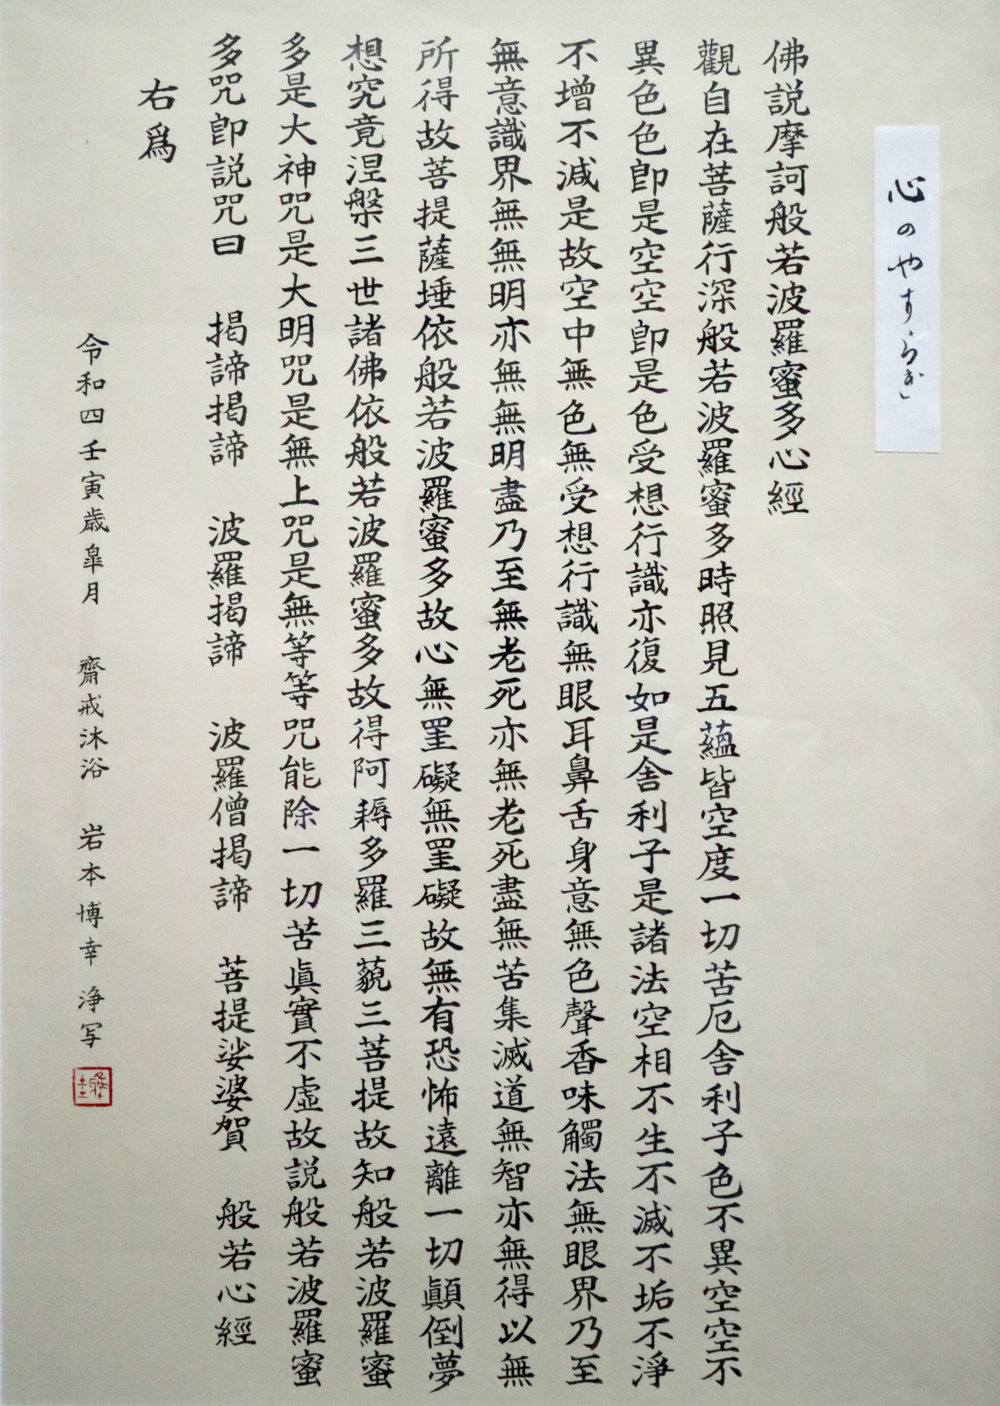 心のやすらぎ
佛説摩訶般若波羅蜜多心經
觀自在菩薩行深般若波羅蜜多時照見五蘊皆空度一切苦厄舎利子色不異空空不
異色色即是空空即是色受想行識亦復如是舎利子是諸法空相不生不滅不垢不淨
不增不減是故空中無色無受想行識無眼耳鼻舌身意無色聲香味觸法無眼界乃至
無意識界無無明亦無無明盡乃至無老死亦無老死盡無苦集滅道無智亦無得以無
所得故菩提薩埵依般若波羅蜜多故心無罣礙無罣礙故無有恐怖遠離一切顚倒夢
想究竟涅槃三世諸佛依般若波羅蜜多故得阿耨多羅三藐三菩提故知般若波羅蜜
多是大神咒是大明咒是無上咒是無等等咒能除一切苦眞實不虛故説般若波羅蜜
多咒即説咒曰 揭諦揭諦 波羅揭諦 波羅僧揭諦 菩提娑婆賀 般若心經
右爲
令和四壬寅歳皐月 齋戒沐浴 岩本博幸 浄写